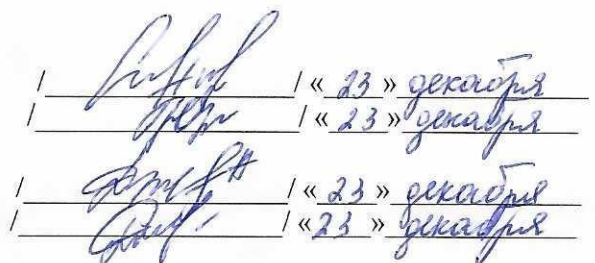 / / « 23 » декабря
/ / « 23 » декабря
/ / « 23 » декабря
/ / « 23 » декабря